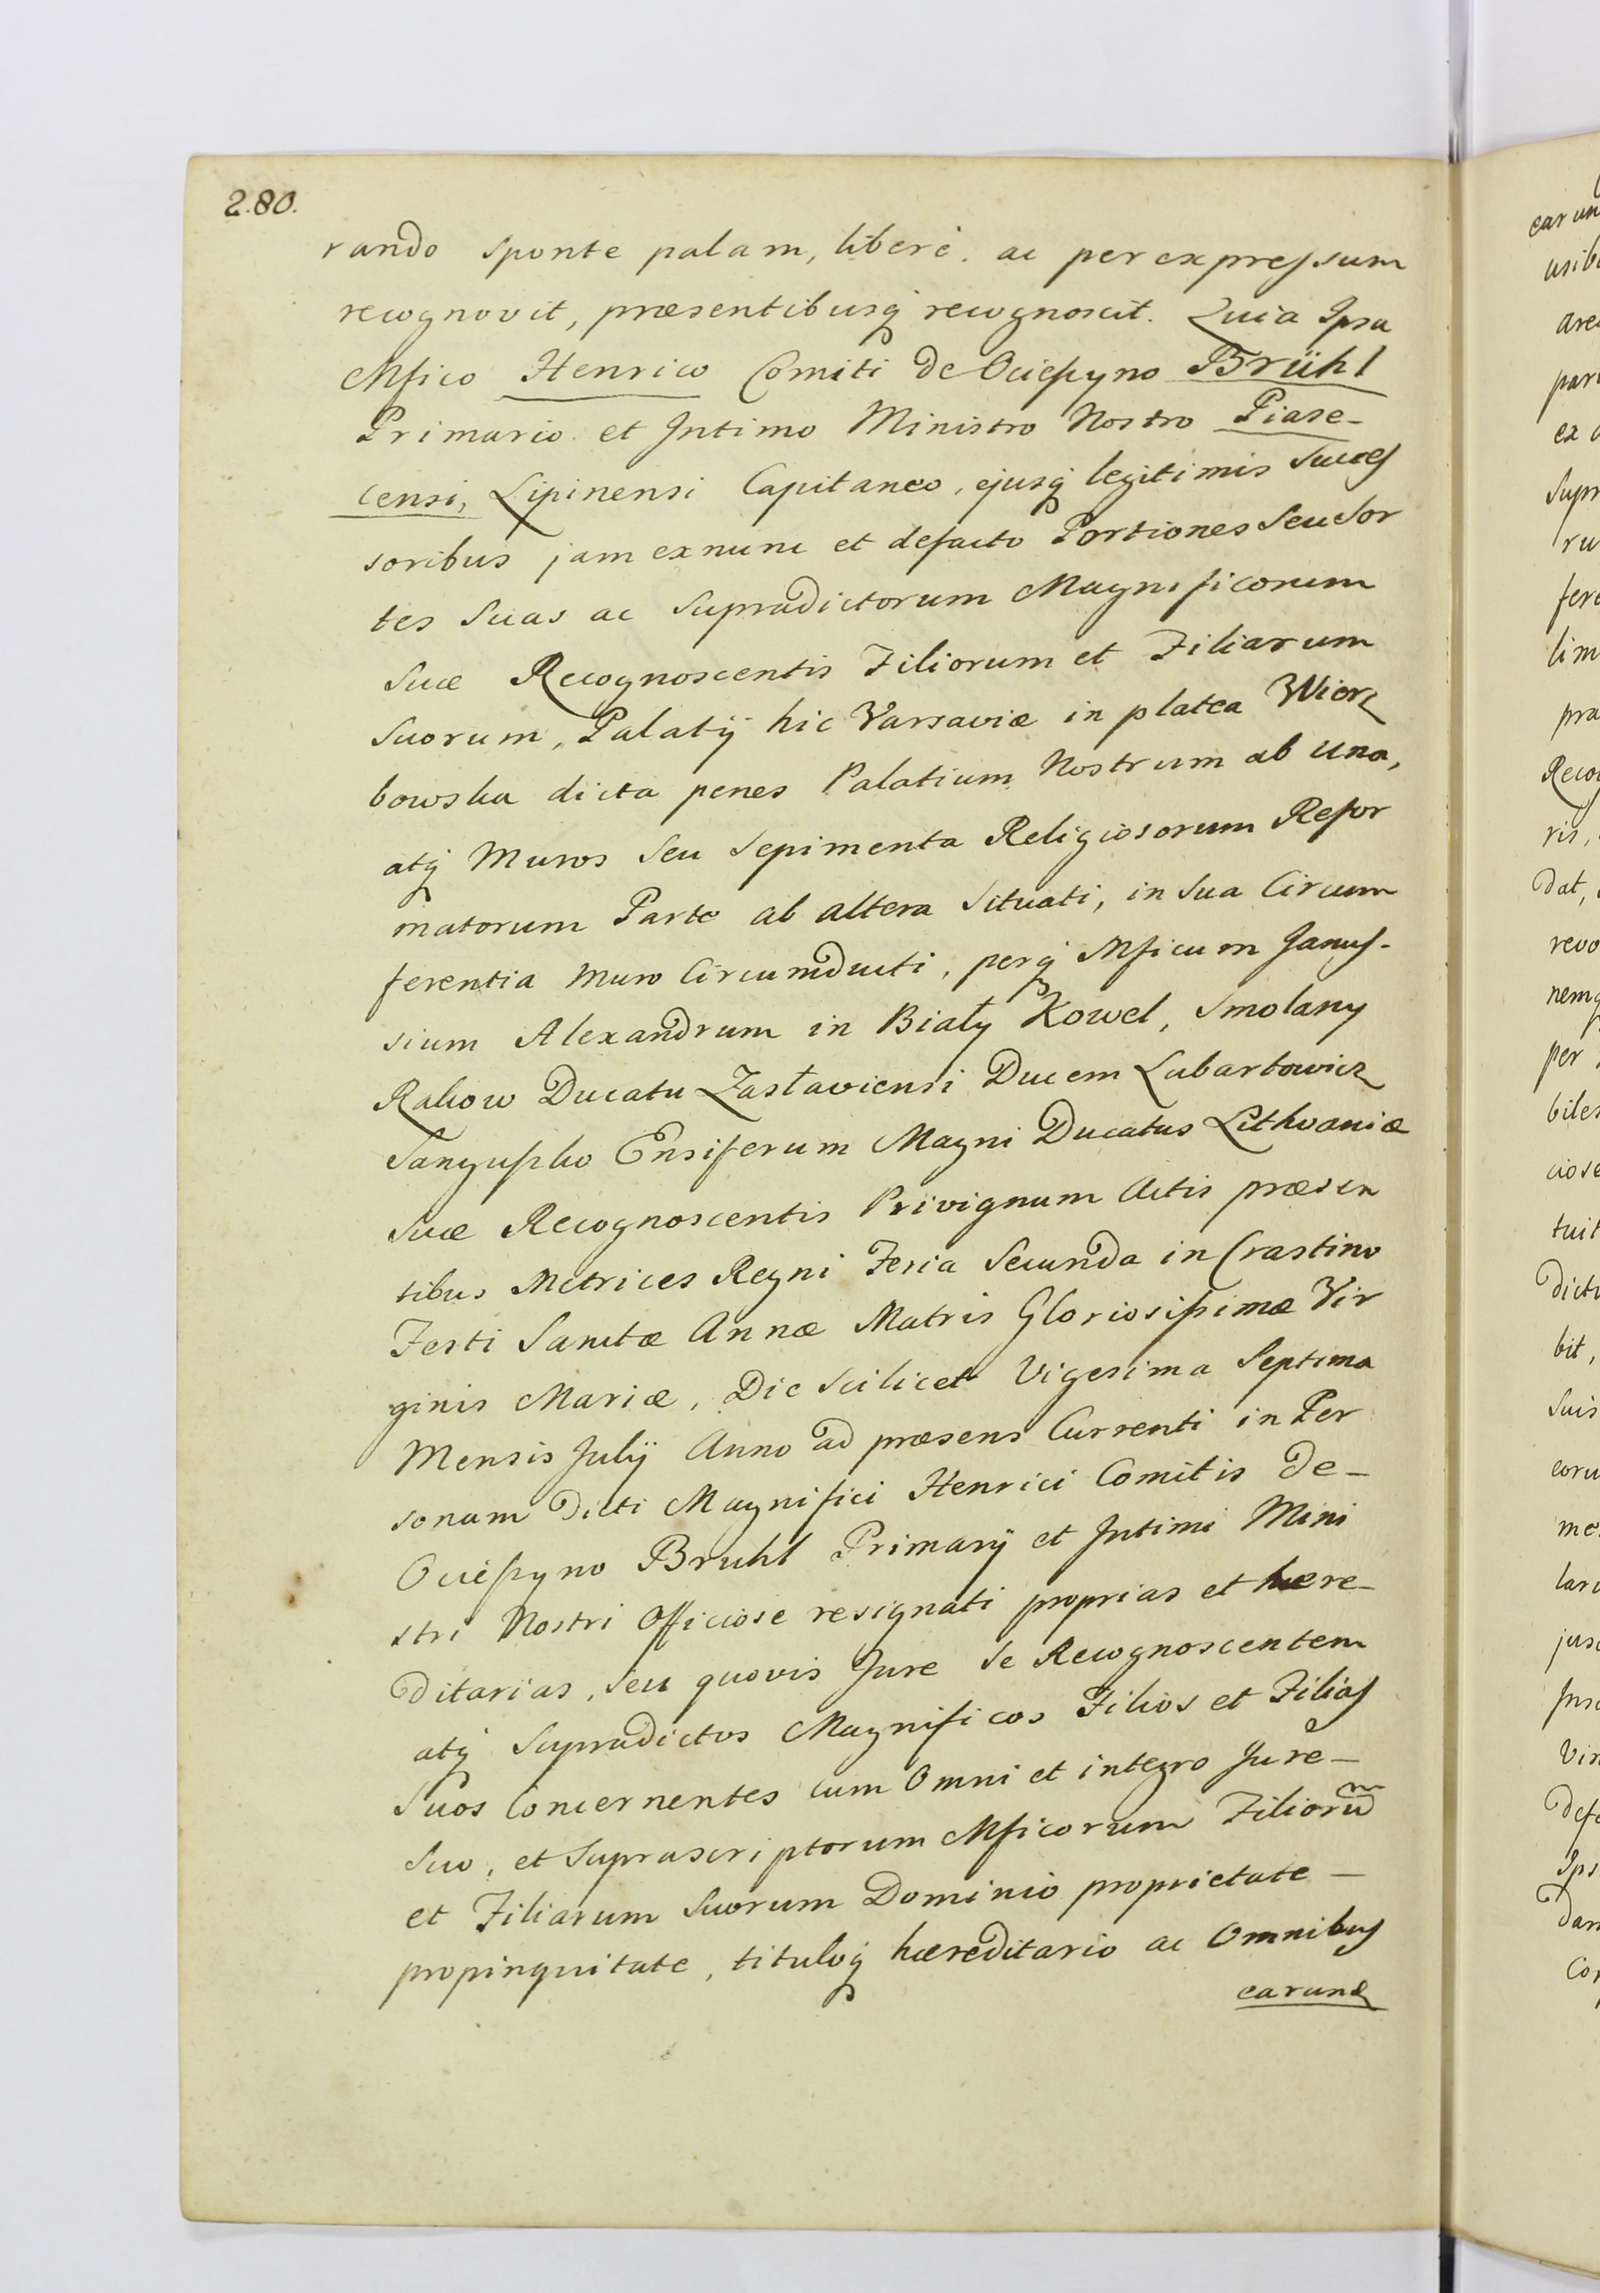 280.
rando sponte palam, liberè ac per expressum
recognovit, præsentibusq recognoscit. Quia Ipsa
Mfico Henrico Comiti de Ocieszyno Brühl
Primario et Intimo Ministro Nostro Piase-
censi, Lipinensi Capitaneo, ejusq legitimis Succes
soribus jam exnunc et defacto Portiones Seu Sor
tes Suas ac Supradictorum Magnificorum
Suæ Recognoscentis Filiorum et Filiarum
Suorum, Palatij hic Varsaviæ in platea Wierz
bowska dicta penes Palatium Nostrum ab una,
atq Muros Seu Sepimenta Religiosorum Refor
matorum Parte ab altera Situati, in Sua Circum
ferentia Muro Circumducti, perq Mficum Janus-
sium Alexandrum in Biały Kowel, Smolany
Rakow Ducatu Zasłaviensi Ducem Lubartowicz
Sanguszko Ensiferum Magni Ducatus Lithvaniæ
Suæ Recognoscentis Privignum Actis præsen
tibus Metrices Regni Feria Secunda in Crastino
Festi Sanctæ Annæ Matris Gloriosissimæ Vir
ginis Mariæ, Die Scilicet Vigesima Septima
Mensis Julij Anno ad præsens Currenti in Per
sonam Dicti Magnifici Henrici Comitis de-
Ocieszyno Bruhl Primarij et Intimi Mini
stri Nostri Officiose resignati proprias et hære-
ditarias, Seu quovis Jure Se Recognoscentem
atq Supradictos Magnificos Filios et Filias
Suos Concernentes cum Omni et integro Jure-
Suo, et Suprascriptorum Mficorum Filiorum
et Filiarum Suorum Dominio proprietate-
propinquitate, tituloq hæreditario ac Omnibus
earund